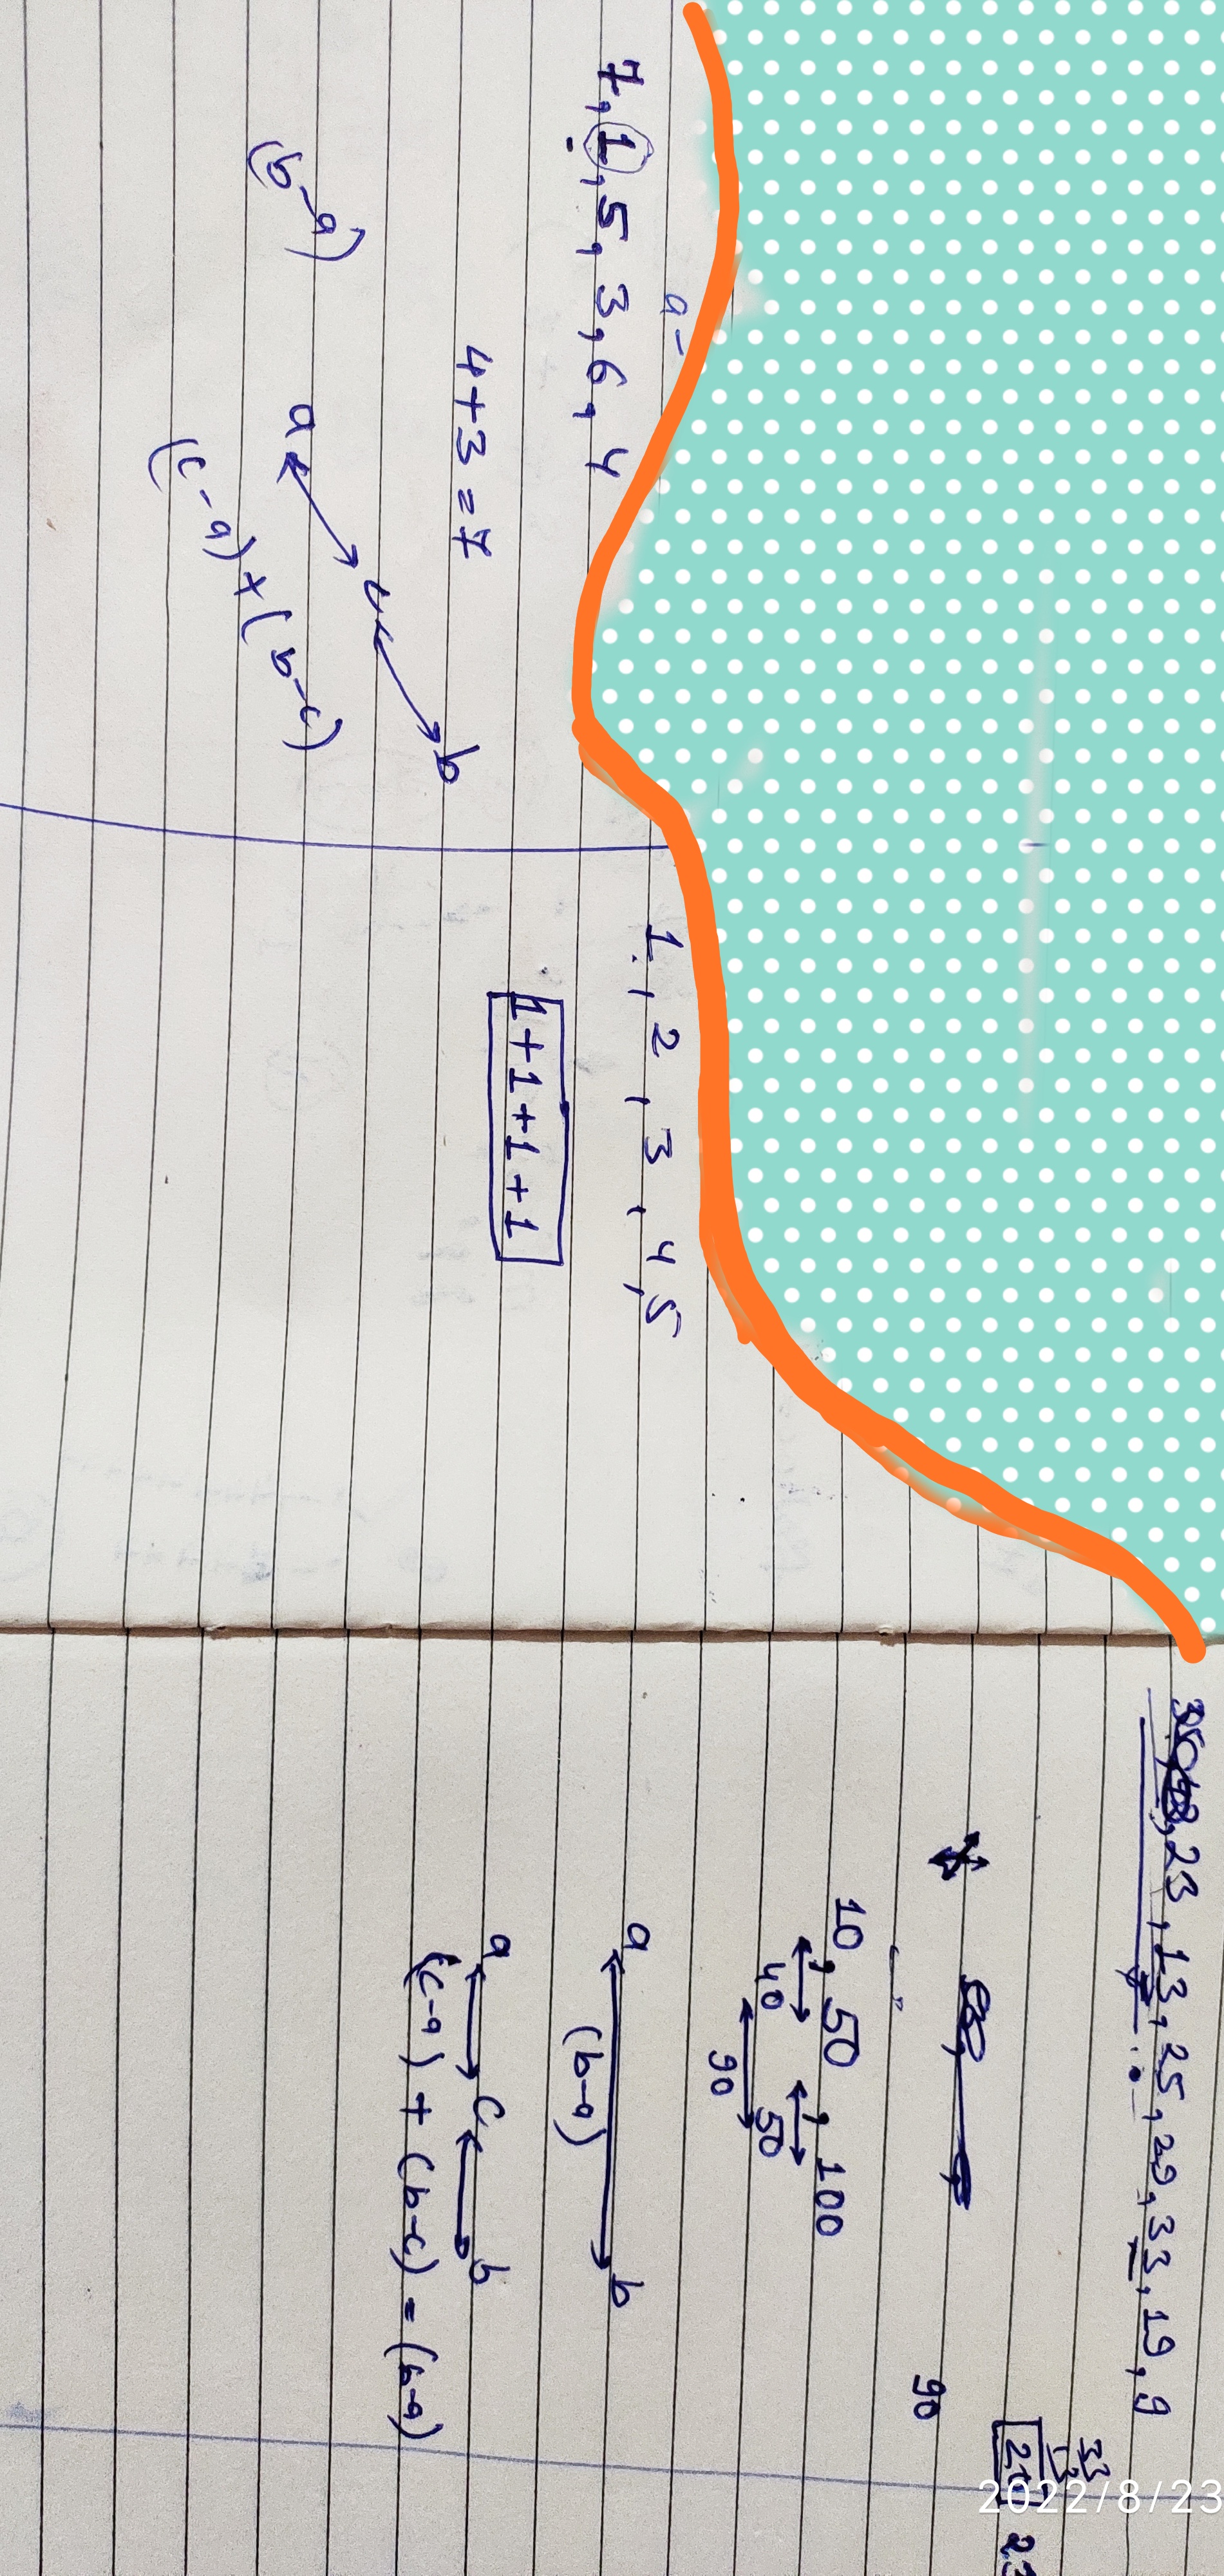 a -
7, 1, 5, 3, 6, 4
4+3=7
b
c
a
(b-a)
(c-a)+(b-c)
1, 2, 3, 4, 5
1+1+1+1
23, 13, 25, 29, 33, 19, 9
33
13
90
10, 50, 100
40 50
90
a b
(b-a)
a c b
(c-a) + (b-c) = (b-a)
2022/8/23